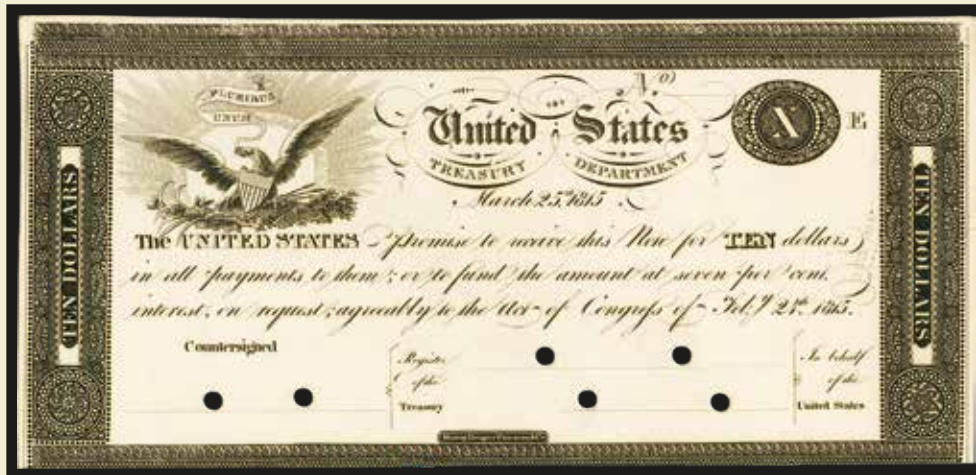 PLURIBUS
UNUM
No)
THE
United States
TREASURY DEPARTMENT
March 25th 1815
X E
TEN DOLLARS
The UNITED STATES Promise to receive this Note for TEN dollars
in all payments to them; or to fund the amount at seven per cent.
interest, on request, agreeably to the Act of Congreſs of Feb.y 24th 1815.
Countersigned
Register
of the
Treasury
In behalf
of the
United States
TEN DOLLARS